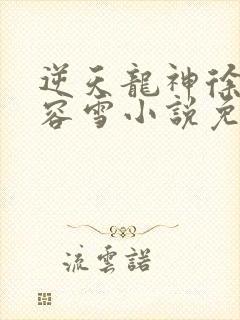 逆天龍神徐
容雪小説免
流雲諾